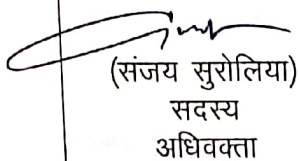 (संजय सुरोलिया)
सदस्य
अधिवक्ता